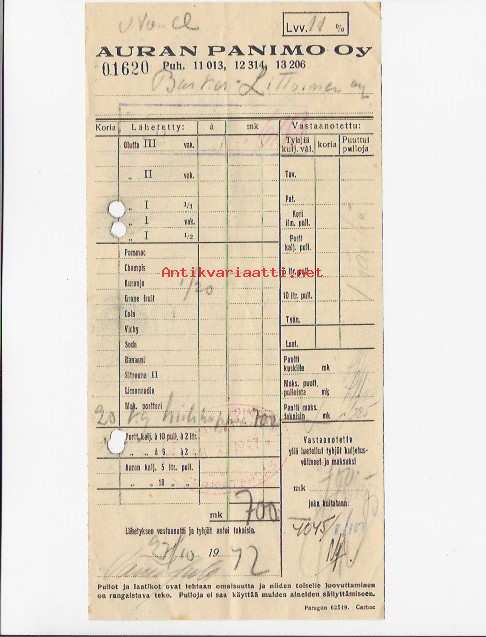 Lvv. 11 %
AURAN PANIMO Oy
01620 Puh. 11 013, 12 314, 13 206
Barker-Littoinen oy
Koria Lähetetty: à mk Vastaanotettu:
Tyhjiä kulj. väl. koria Puuttui pulloja
Olutta III vak.
„ II vak. Tav.
„ I 1/1 Pat.
„ I vak. Kori ilm. pull.
„ I 1/2 Portt kalj. pull.
Pommac
Champis 5 ltr. pull.
Antikvariaatti.net
Kuranja 1/20 10 ltr. pull.
Grape fruit
Cola Tynn.
Vichy
Soda Laat.
Banaani Pantti kuskille mk
Sitruuna II
Limonaadia Maks. puutt. pulloista mk
Mak. portteri Pantti maks. takaisin mk
20 kg 700
Portt. kalj. à 10 pull. à 2 ltr.
„ „ à 6 „ à 2 „
Vastaanotettu yllä luetellut tyhjät kuljetusvälineet ja maksaksi
Auran kalj. 5 ltr. pull.
„ „ 10 „ „
mk
mk 700
joka kuitataan:
Lähetyksen vastaanotti ja tyhjät antoi takaisin.
4045
19 42
Pullot ja laatikot ovat tehtaan omaisuutta ja niiden toiselle luovuttaminen
on rangaistava teko. Pulloja ei saa käyttää muiden aineiden säilyttämiseen.
Paragon 62519. Carboc